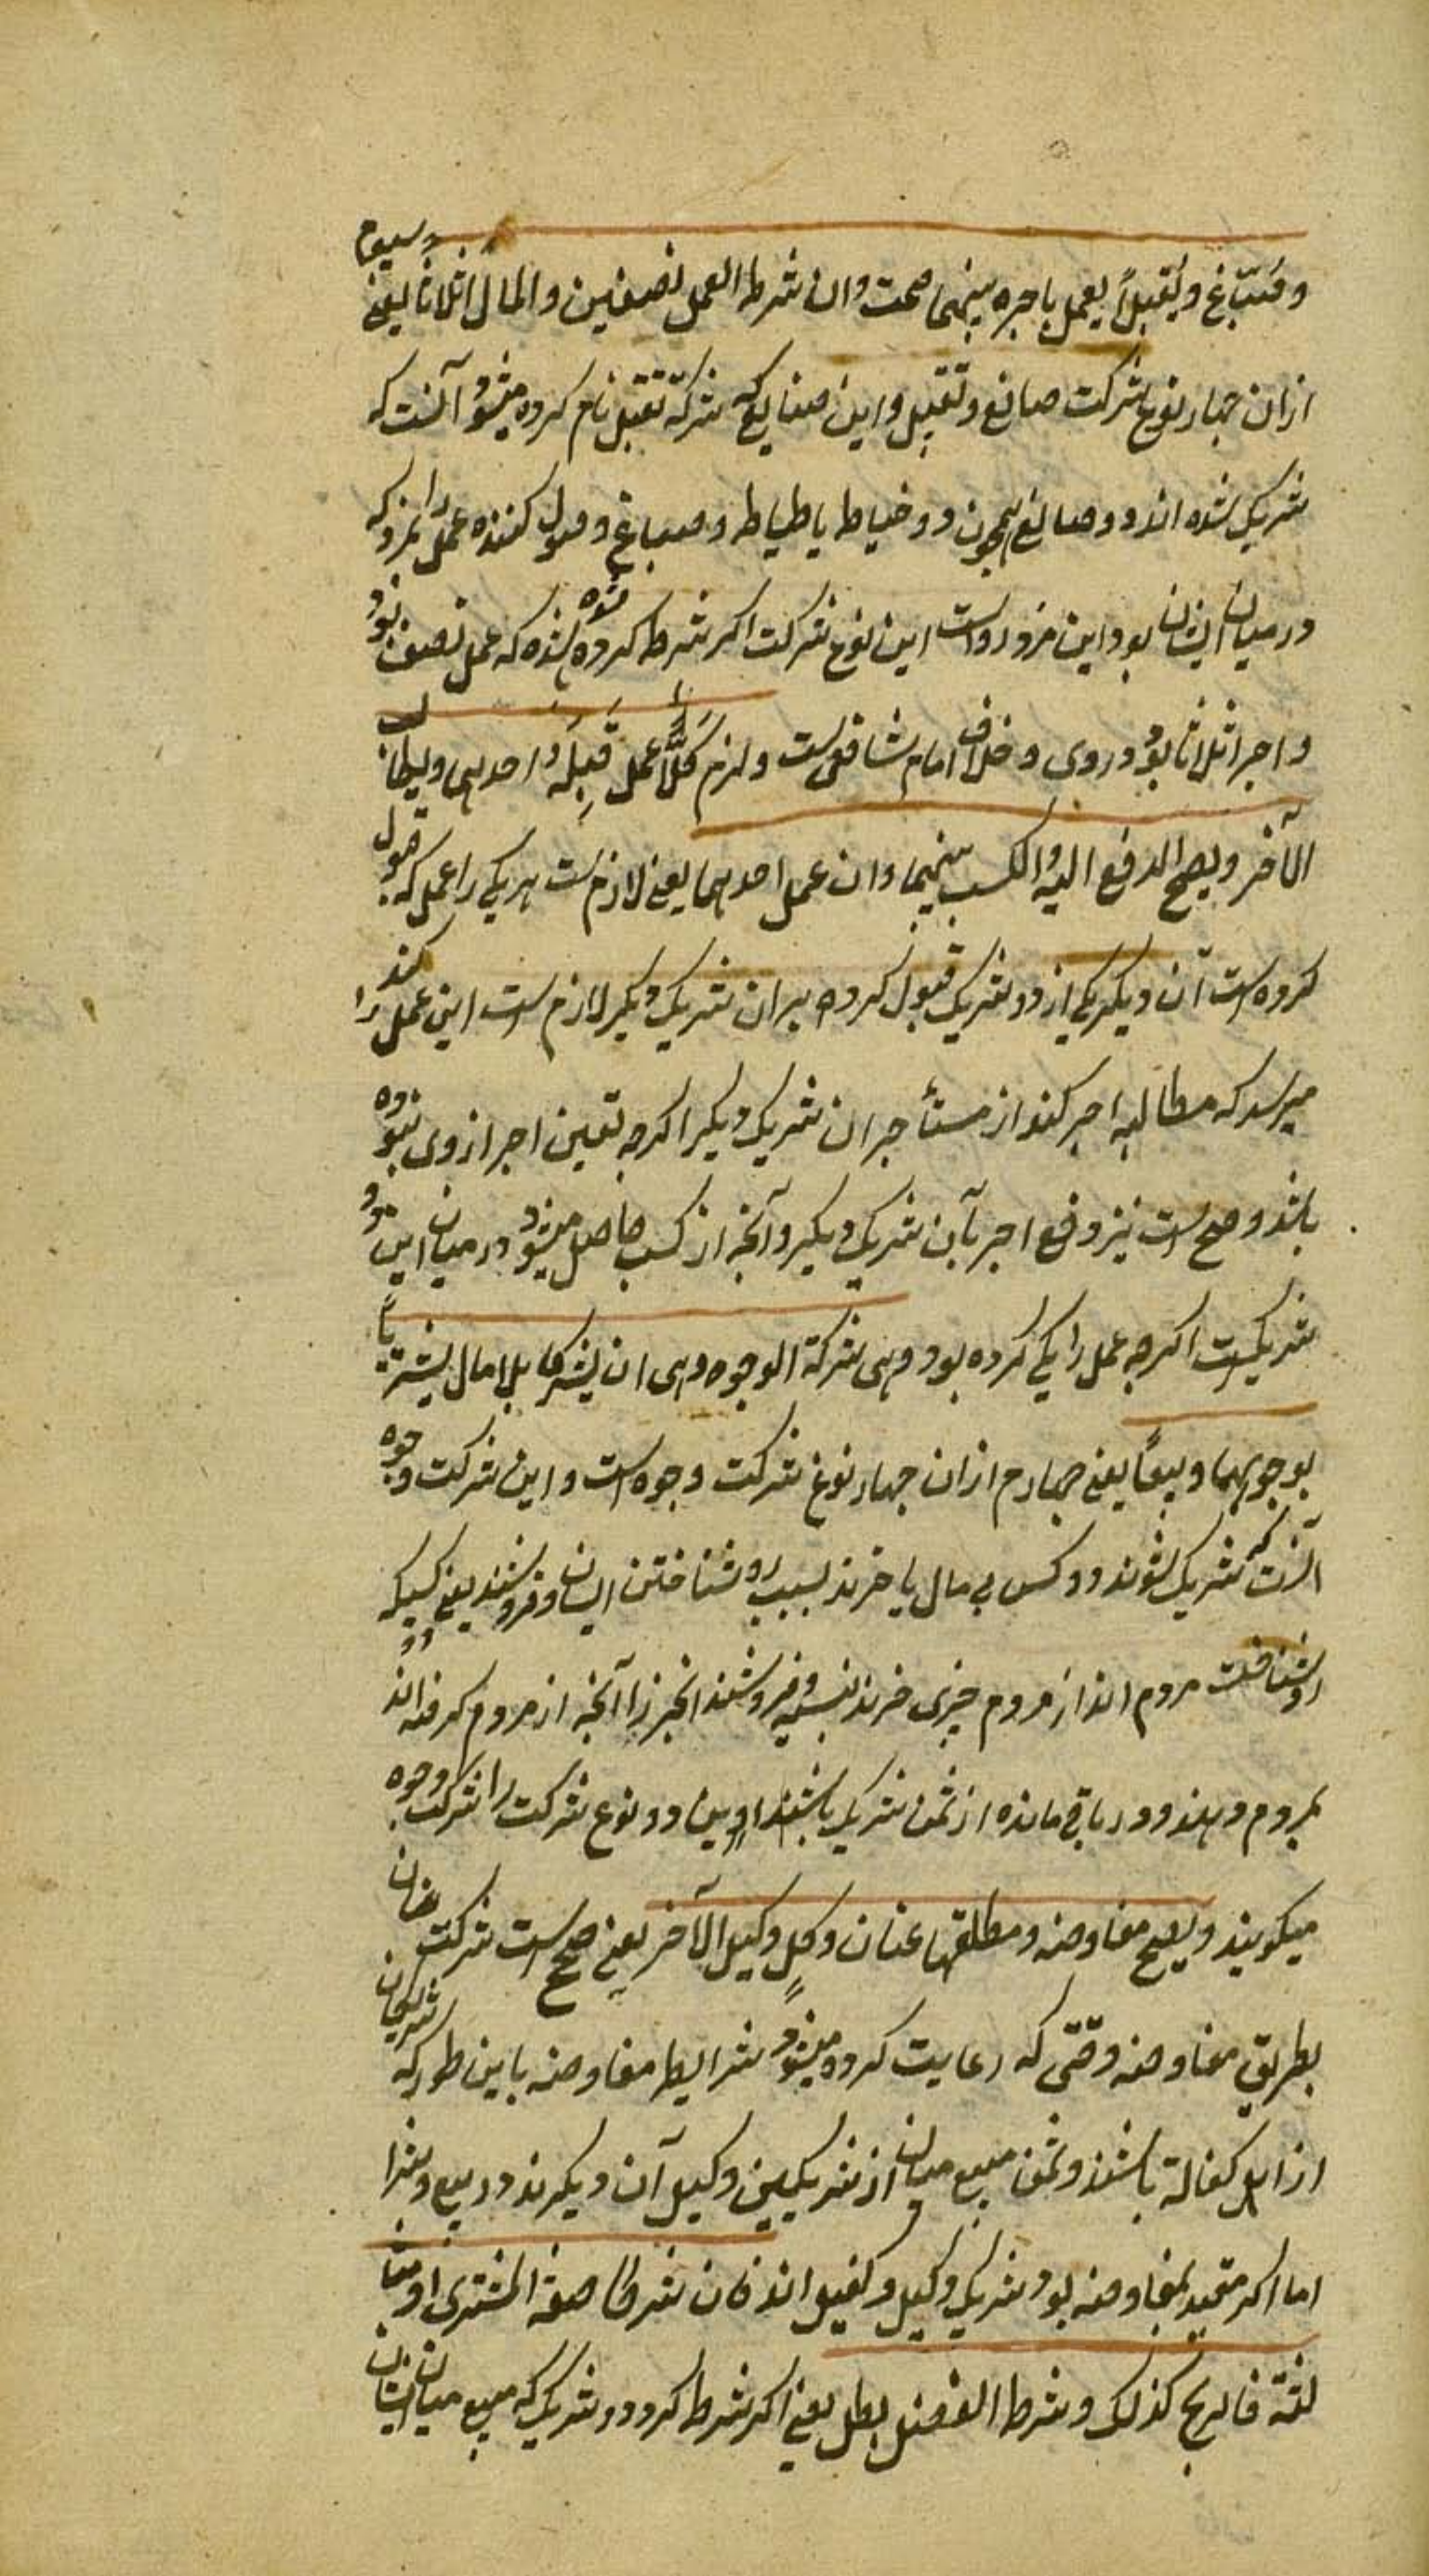 وصباغ وتقبلا یعمل باجره بینهما صحت وان شرط العمل نصفین والمال اثلاثا یعنی سیوم
ازان چهار نوع شرکت صنایع وتقبل واین صنایع که شرکة تقبل نام کرده میشود آنست که
شریک شده اند دو صانع همچون دو خیاط یا خیاط وصباغ وقبول کننده عمل را بمزد که
در میان ایشان بود این مزد رواست این نوع شرکت اکر شرط کرده شده که عمل نصف بود
واجر اثلاثا بود و روی خلاف امام شافعی است ولزم کلا عمل قبله احدهما ویطالب
الآخر ویصح الدفع الیه والکسب بینهما وان عمل احدهما یعنی لازمست هر یکی را عمل که قبول
کرده است آن دیکر یکی از دو شریک قبول کرده بر آن شریک دیکر لازم است این عمل را کند
میرسد که مطالبه اجر کند از مستأجران شریک دیکر اکرچه تعین اجر از وی نبوده
باشد وصح است نیز دفع اجر بآن شریک دیکر وآنچه از کسب حاصل میشود در میان این دو
شریکست اکرچه عمل را یکی کرده بود وهی شرکة الوجوه وهی ان یشترکا بلا مال یشتریا
بوجوههما ویبیعا یعنی چهارم ازان چهار نوع شرکت وجوه است واین شرکت وجوه
آنست که شریک شوند دو کس بی مال یا خرند بسبب رو شناختن ایشان وفروشند یعنی کسیکه
روشناخت مردم اند از مردم چیزی خرند بنسیه وفروشند آنچیز را آنچه از مردم کرفته اند
بمردم دهند ودر باقی مانده از ثمن شریک باشند واین دو نوع شرکت را شرکت وجوه
میکویند ویصح مفاوضه ومطلقها عنان وکل وکیل الآخر یعنی صح است شرکت عنان
بطریق مفاوضه وقتی که رعایت کرده میشود شرایط مفاوضه باین طور که شریکان
از اهل کفالة باشند وثمن مبیع میان از شریکین وکیل آن دیکرند در بیع وشرا
اما اکر مقید بمفاوضه بود شریک وکیل وکفیل اند فان شرطا مناصفة المشتری او مثا
لثة فالربح کذلک وشرط الفضل بطل یعنی اکر شرط کرد دو شریک که مبیع میان ایشان